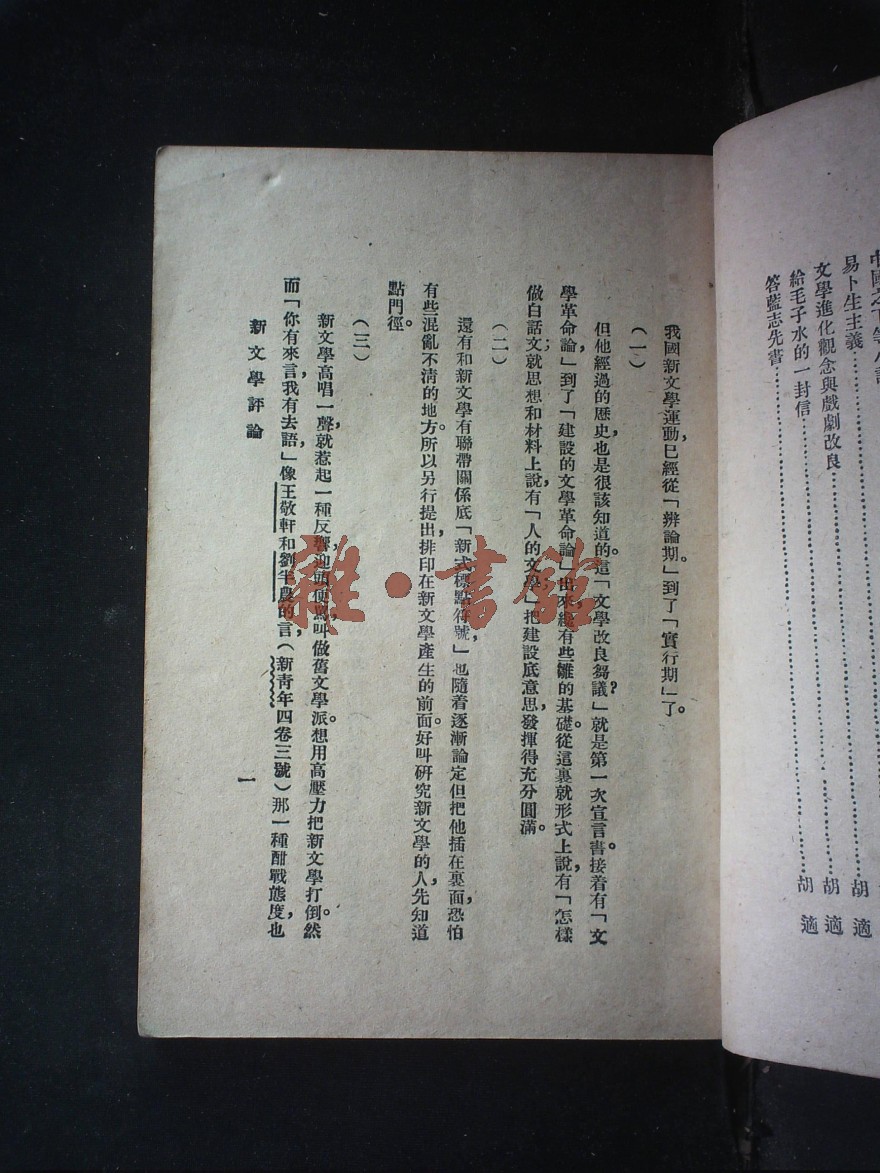 易卜生主義……………………胡適
文學進化觀念與戲劇改良……………………胡適
給毛子水的一封信……………………胡適
答藍志先書……………………胡適
我國新文學運動，已經從「辨論期」。到了「實行期」了。
（一）
但他經過的歷史，也是很該知道的。這「文學改良芻議」？就是第一次宣言書。接着有「文
學革命論」，到了「建設的文學革命論」出來，纔有些雛的基礎。從這裏就形式上說，有「怎樣
做白話文；就思想和材料上說，有「人的文學」，把建設底意思，發揮得充分圓滿。
（二）
還有和新文學有聯帶關係底「新式標點符號」，也隨着逐漸論定，但把他插在裏面，恐怕
有些混亂不清的地方。所以另行提出，排印在新文學產生的前面。好叫研究新文學的人，先知道
點門徑。
（三）
新文學高唱一聲，就惹起一種反響，迎頭便罵，叫做舊文學派。想用高壓力把新文學打倒。然
而「你有來言，我有去語，」像王敬軒和劉半農的言，（新青年四卷三號）那一種酣戰態度，也
新文學評論
一
雜·書館